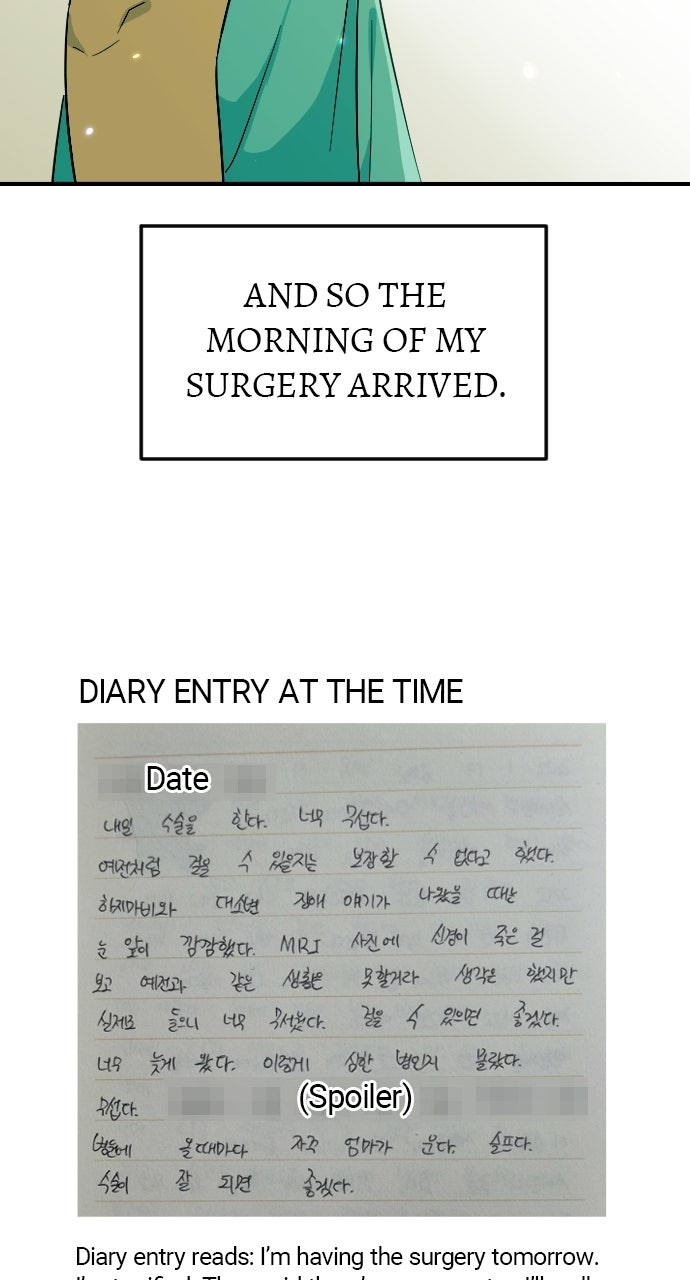 AND SO THE
MORNING OF MY
SURGERY ARRIVED.
DIARY ENTRY AT THE TIME
Date
내일 수술을 한다. 너무 무섭다.
예전처럼 걸을 수 있을지는 보장할 수 없다고 했다.
하지마비와 대소변 장애 얘기가 나왔을 때는
눈 앞이 깜깜했다. MRI 사진에 신경이 죽은 걸
보고 예전과 같은 생활은 못할거라 생각은 했지만
실제로 들으니 너무 무서웠다. 걸을 수 있으면 좋겠다.
너무 늦게 왔다. 이렇게 심한 병인지 몰랐다.
무섭다. (Spoiler)
병동에 올때마다 자꾸 엄마가 운다. 슬프다.
수술이 잘 되면 좋겠다.
Diary entry reads: I'm having the surgery tomorrow.